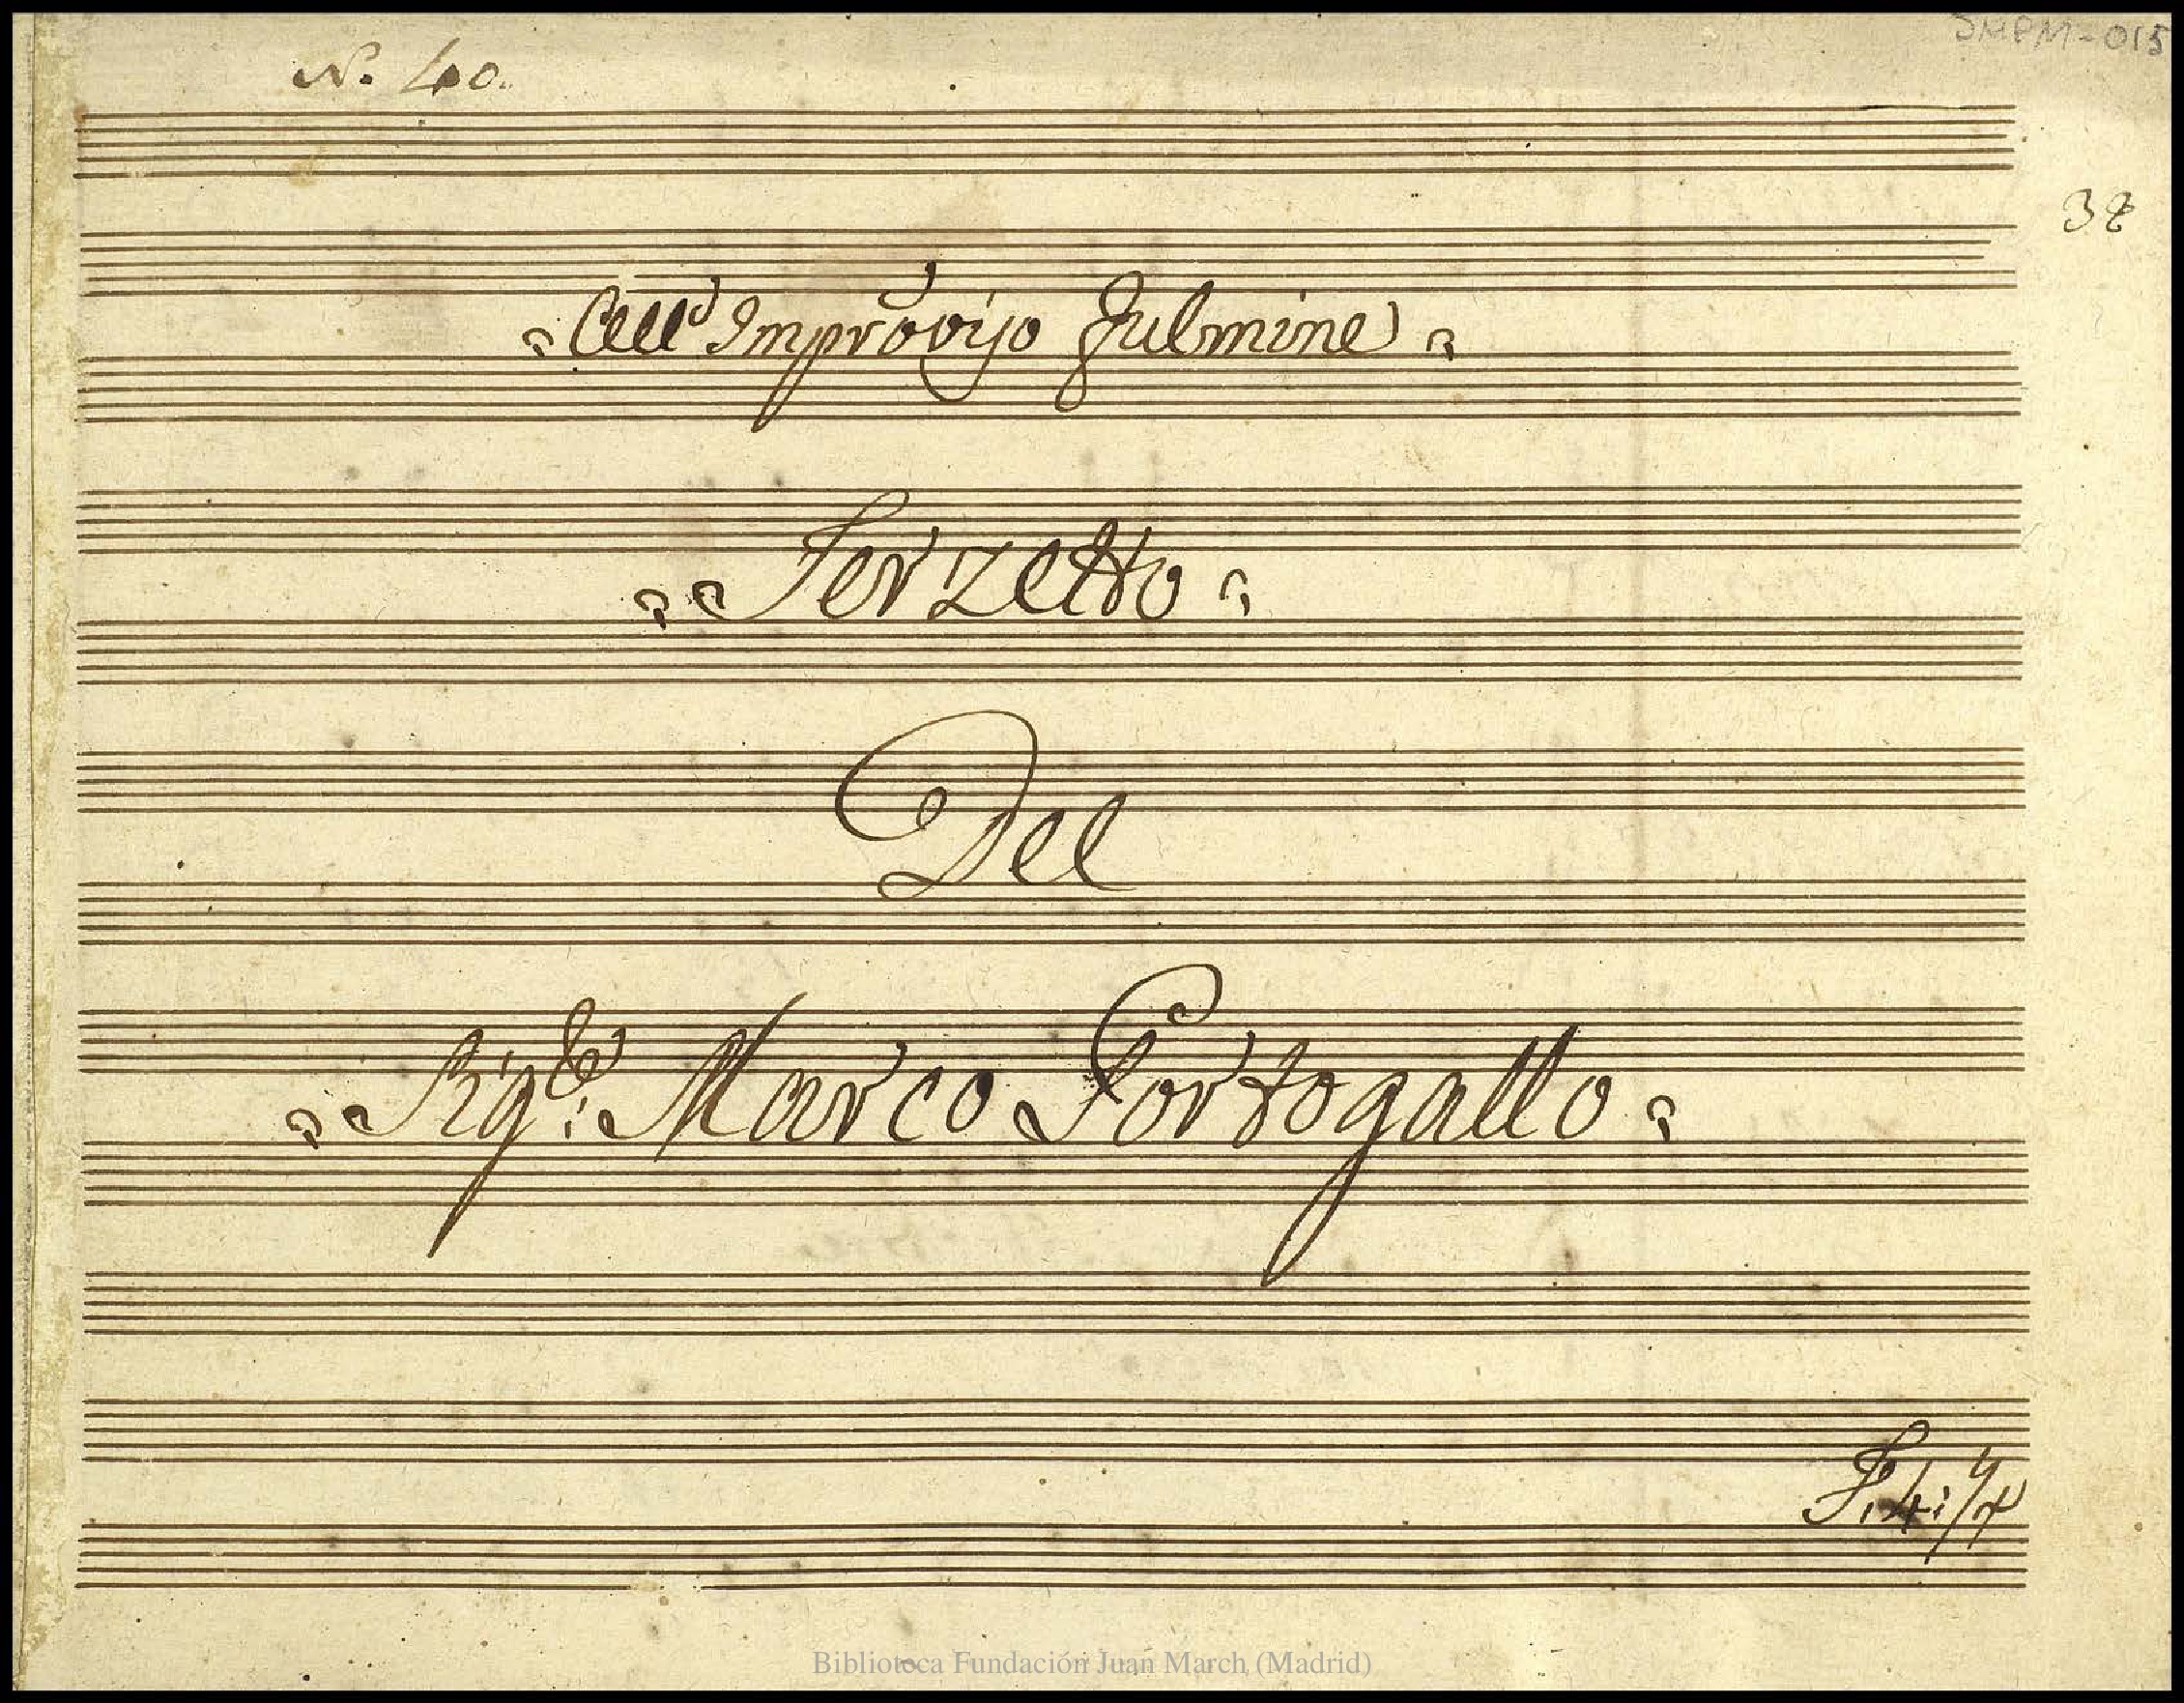 N. 40.
SMPM-015
38
All' Improviso Fulmine
Terzetto
Del
Sig.e Marco Portogallo
F. 4:
Biblioteca Fundación Juan March (Madrid)